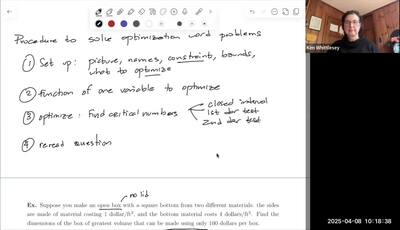 Procedure to solve optimization word problems
① Set up: picture, names, constraint, bounds,
what to optimize
② function of one variable to optimize
③ optimize: find critical numbers
closed interval
1st der test
2nd der test
④ reread question
no lid
Ex. Suppose you make an open box with a square bottom from two different materials: the sides
are made of material costing 1 dollar/ft², and the bottom material costs 4 dollars/ft². Find the
dimensions of the box of greatest volume that can be made using only 100 dollars per box.
Ken Whittlesey
2025-04-08 10:18:38